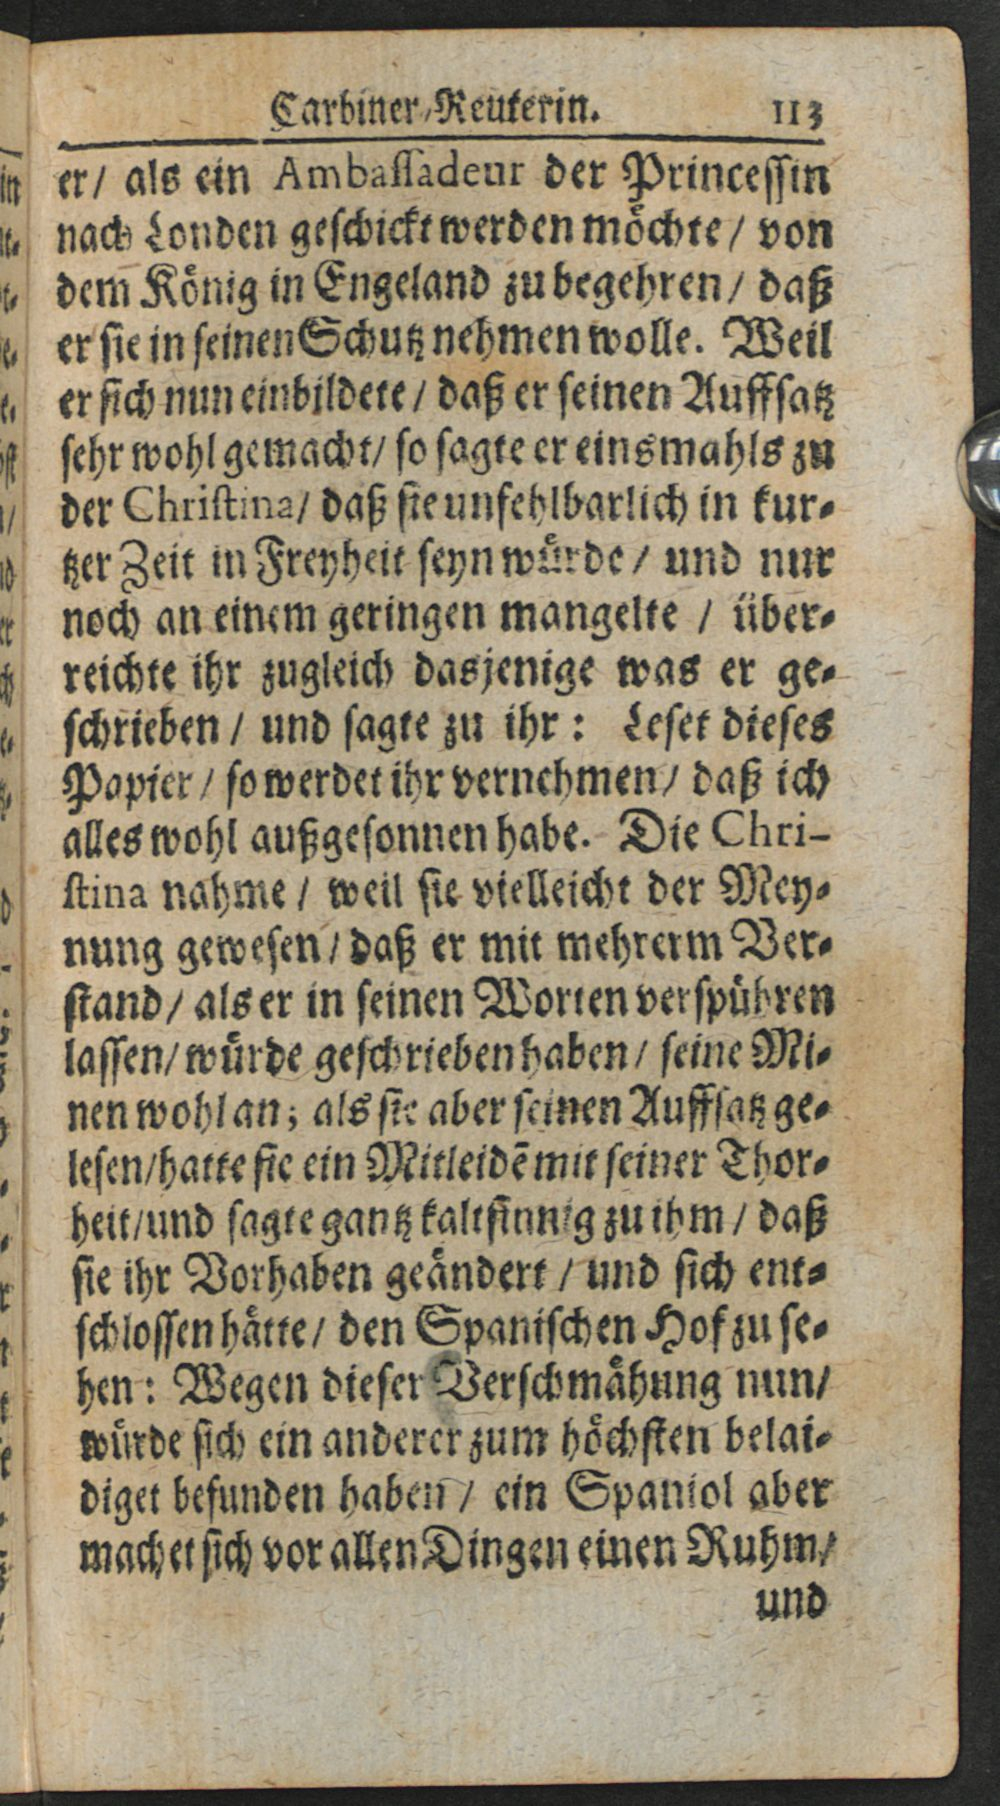 Carbiner-Reuterin. 113
er/ als ein Ambassadeur der Princessin
nach Londen geschickt werden möchte / von
dem König in Engeland zu begehren / daß
er sie in seinen Schutz nehmen wolle. Weil
er sich nun einbildete / daß er seinen Auffsatz
sehr wohl gemacht/ so sagte er einsmahls zu
der Christina/ daß sie unfehlbarlich in kur-
tzer Zeit in Freyheit seyn würde / und nur
noch an einem geringen mangelte / über-
reichte ihr zugleich dasjenige was er ge-
schrieben / und sagte zu ihr : Leset dieses
Papier / so werdet ihr vernehmen/ daß ich
alles wohl außgesonnen habe. Die Chri-
stina nahme / weil sie vielleicht der Mey-
nung gewesen / daß er mit mehrerm Ver-
stand/ als er in seinen Worten verspühren
lassen/ würde geschrieben haben / seine Mi-
nen wohl an; als sie aber seinen Auffsatz ge-
lesen/hatte sie ein Mitleidē mit seiner Thor-
heit/und sagte gantz kaltsinnig zu ihm / daß
sie ihr Vorhaben geändert / und sich ent-
schlossen hätte/ den Spanischen Hof zu se-
hen : Wegen dieser Verschmähung nun/
würde sich ein anderer zum höchsten belai-
diget befunden haben / ein Spaniol aber
machet sich vor allen Dingen einen Ruhm/
und